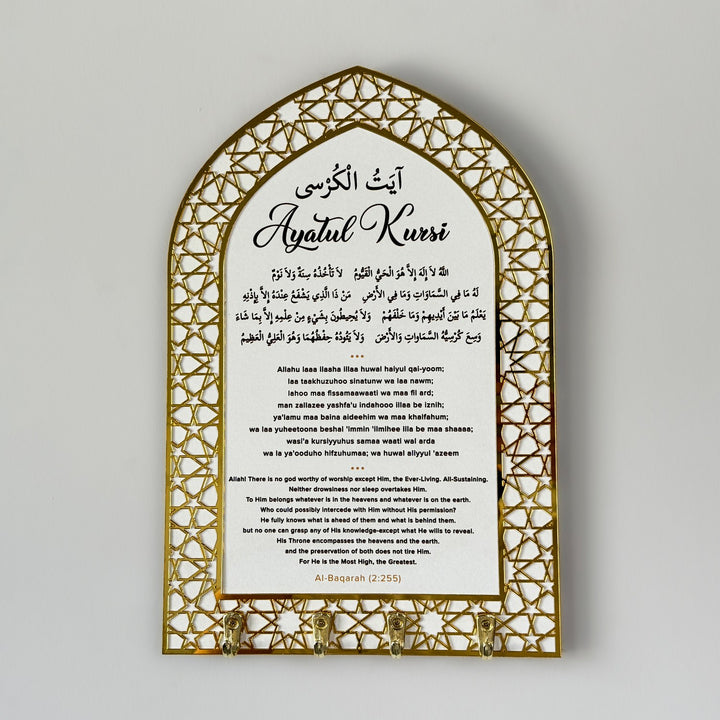 آيَتُ الْكُرْسى
Ayatul Kursi
اَللهُ لاَ إِلَهَ إِلاَّ هُوَ الْحَيُّ الْقَيُّومُ لاَ تَأْخُذُهُ سِنَةٌ وَلاَ نَوْمٌ
لَهُ مَا فِي السَّمَاوَاتِ وَمَا فِي الأَرْضِ مَنْ ذَا الَّذِي يَشْفَعُ عِنْدَهُ إِلاَّ بِإِذْنِهِ
يَعْلَمُ مَا بَيْنَ أَيْدِيهِمْ وَمَا خَلْفَهُمْ وَلاَ يُحِيطُونَ بِشَيْءٍ مِنْ عِلْمِهِ إِلاَّ بِمَا شَاءَ
وَسِعَ كُرْسِيُّهُ السَّمَاوَاتِ وَالأَرْضَ وَلاَ يَئُودُهُ حِفْظُهُمَا وَهُوَ الْعَلِيُّ الْعَظِيمُ
Allahu laaa ilaaha illaa huwal haiyul qai-yoom;
laa taakhuzuhoo sinatunw wa laa nawm;
lahoo maa fissamaawaati wa maa fil ard;
man zallazee yashfa'u indahooo illaa be iznih;
ya'lamu maa baina aideehim wa maa khalfahum;
wa laa yuheetoona beshai 'immin 'ilmihee illa be maa shaaaa;
wasi'a kursiyyuhus samaa waati wal arda
wa la ya'ooduho hifzuhumaa; wa huwal aliyyul 'azeem
Allah! There is no god worthy of worship except Him, the Ever-Living. All-Sustaining.
Neither drowsiness nor sleep overtakes Him.
To Him belongs whatever is in the heavens and whatever is on the earth.
Who could possibly intercede with Him without His permission?
He fully knows what is ahead of them and what is behind them.
but no one can grasp any of His knowledge-except what He wills to reveal.
His Throne encompasses the heavens and the earth.
and the preservation of both does not tire Him.
For He is the Most High, the Greatest.
Al-Baqarah (2:255)